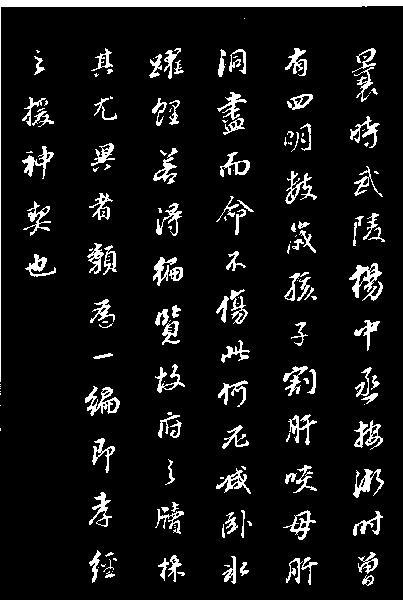 曩時武陵楊中丞按浙時曾
有四明數歲孩子割肝啖母肝
洞盡而命不傷此何冗减卧氷
躍鯉若得徧覽故府之牘採
其尤異者類為一編即孝經
之援神契也